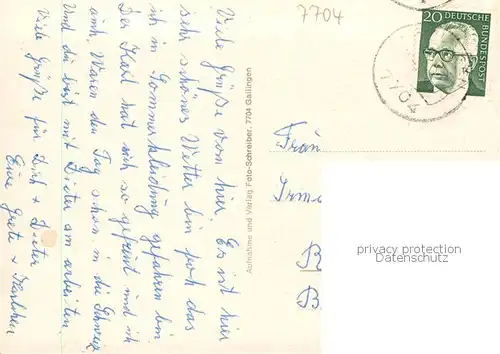 Viele Grüße von hier. Es ist hier
sehr schönes Wetter bin froh das
ich in Sommerkleidung gefahren bin.
Der Karl hat sich so gefreut und ich
auch. Waren den Tag schon in die Schweiz
Und du bist mit Dieter am arbeiten.
Viele Grüße für Dich + Dieter
Eure Grete + Karlchen
Aufnahme und Verlag Foto-Schreiber, 7704 Gailingen
7704
20 DEUTSCHE
BUNDESPOST
7704
Frau
Irm
B
B
privacy protection
Datenschutz